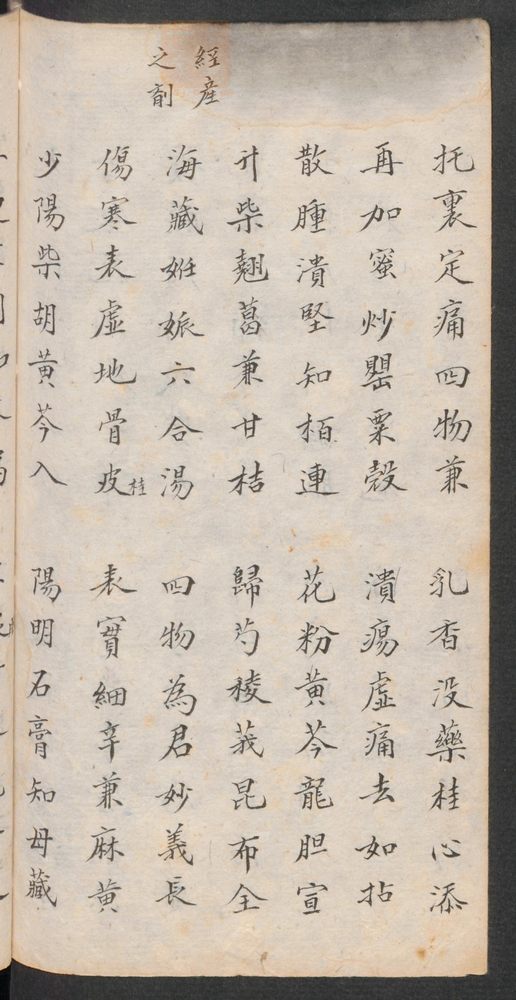 托裏定痛四物兼　乳香没藥桂心添
再加蜜炒罌粟殼　潰瘍虛痛去如拈
散腫潰堅知栢連　花粉黄芩龍胆宣
升柴翹葛兼甘桔　歸芍稜莪昆布全
經產
之劑
海藏姙娠六合湯　四物為君妙義長
傷寒表虛地骨皮桂　表實細辛兼麻黄
少陽柴胡黄芩入　陽明石膏知母藏